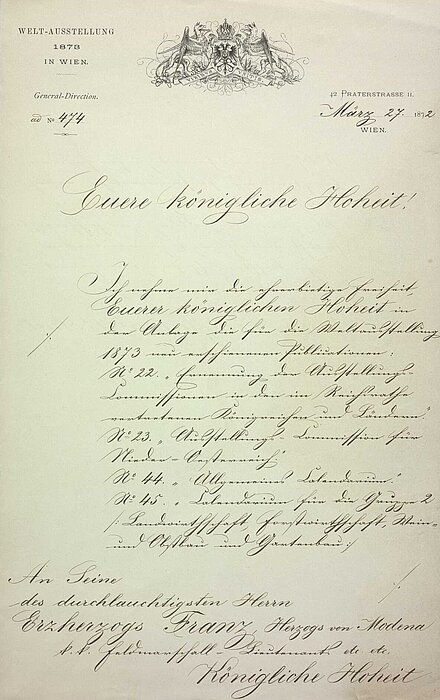 WELT-AUSSTELLUNG
1873
IN WIEN.
General-Direction.
ad No 474
42 PRATERSTRASSE II.
März 27. 1872
WIEN.
Euere königliche Hoheit!
Ich nehme mir die ehrerbietige Freiheit,
Euerer königlichen Hoheit in
der Anlage die für die Weltausstellung
1873 neu erschienenen Publicationen:
No 22. „Ernennung der Ausstellungs-
Commissionen in den im Reichsrathe
vertretenen Königreichen und Ländern“
No 23. „Ausstellungs-Commission für
Nieder-Oesterreich“
No 44. „Allgemeines Calendarium.“
No 45. „Calendarium für die Gruppe 2
/: Landwirthschaft, Forstwirthschaft, Wein-
und Obstbau und Gartenbau :/
An Seine
des durchlauchtigsten Herrn
Erzherzogs Franz, Herzogs von Modena
k. k. Feldmarschall-Lieutenant etc. etc.
Königliche Hoheit